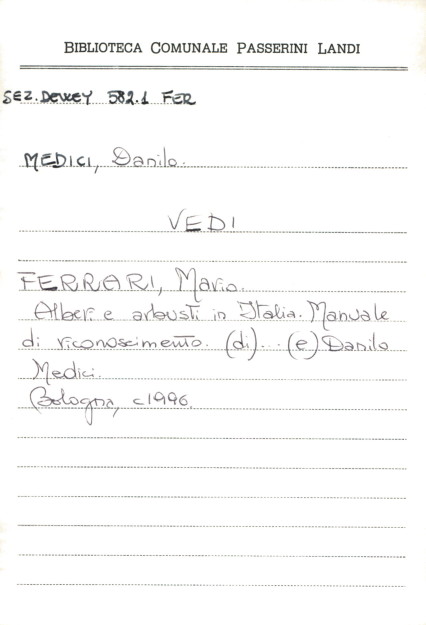 BIBLIOTECA COMUNALE PASSERINI LANDI
SEZ. DEWEY 582.1 FER
MEDICI, Danilo.
VEDI
FERRARI, Mario.
Alberi e arbusti in Italia. Manuale
di riconoscimento. (di)... (e) Danilo
Medici.
Bologna, c1996.